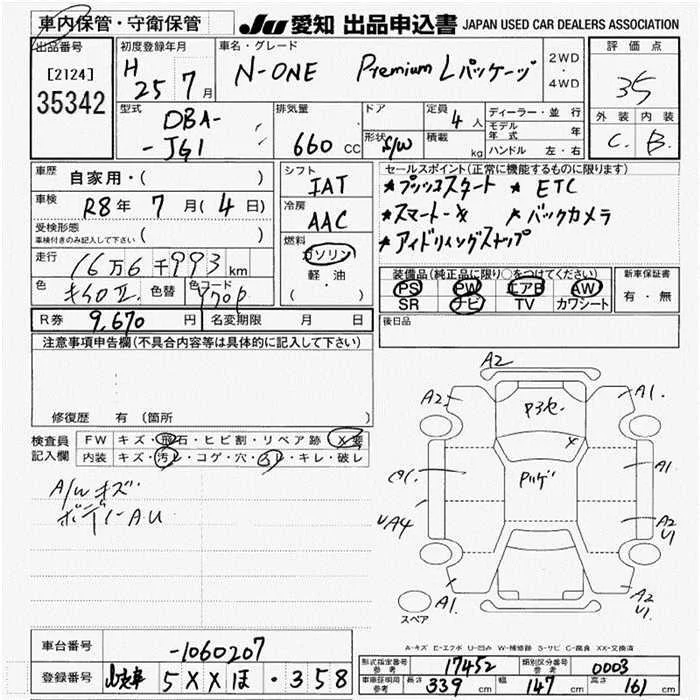 車内保管・守衛保管 JU 愛知 出品申込書 JAPAN USED CAR DEALERS ASSOCIATION
出品番号
[2124]
35342
初度登録年月
H 25年 7月
車名・グレード
N-ONE Premium Lパッケージ
2WD
・
4WD
評価点
3.5
外装 内装
C. B.
型式
DBA-
-JG1
排気量
660 CC
ドア
形状 S/W
定員 4人
積載 kg
ディーラー・並行
モデル年式 年
ハンドル 左・右
車歴 自家用・( )
車検 R8年 7月(4日)
受検形態
車検付きのみ記入して下さい ( )
走行 16万6千993km
色 キイロⅡ 色替 色コード Y70P
シフト
IAT
冷房
AAC
燃料
ガソリン
軽・油
( ・ )
セールスポイント(正常に機能するものに限ります)
★プッシュスタート ★ETC
★スマートキー ★バックカメラ
★アイドリングストップ
装備品(純正品に限り○をつけてください)
PS PW エアB AW
SR ナビ TV カワシート
新車保証書
有・無
R券 9,670円 名変期限 月 日
後日品
注意事項申告欄(不具合内容等は具体的に記入して下さい)
修復歴 有(箇所 )
検査員
記入欄
FW キズ・飛石・ヒビ割・リペア跡
内装 キズ・汚レ・コゲ・穴・スレ・キレ・破レ
A/W キズ
ボディーA.U
A2
A2 A1.
X
A1
UA4
A2
U1
A1.
A2
U1
スペア
A-キズ E-エクボ U-凹み W-補修跡 S-サビ C-腐食 XX-交換済
車台番号 -1060207
登録番号 5XXほ・358
形式指定番号
参考 17452
類別区分番号
参考 0003
車庫証明用
参考 長さ 339 cm 幅 147 cm 高さ 161 cm